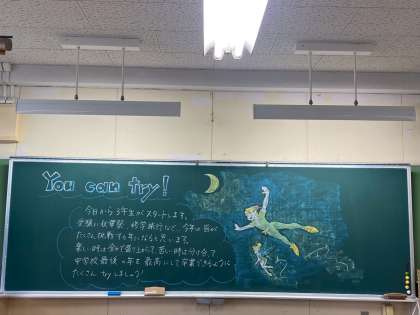 You can try!
今日から3年生がスタートします。
受験に体育祭、修学旅行など、今年は皆が
たくさん挑戦する年になると思います。
楽しい時は全力で盛り上がって 苦しい時は分け合って
中学校最後の年を最高にして卒業できるように
たくさん try しましょう!